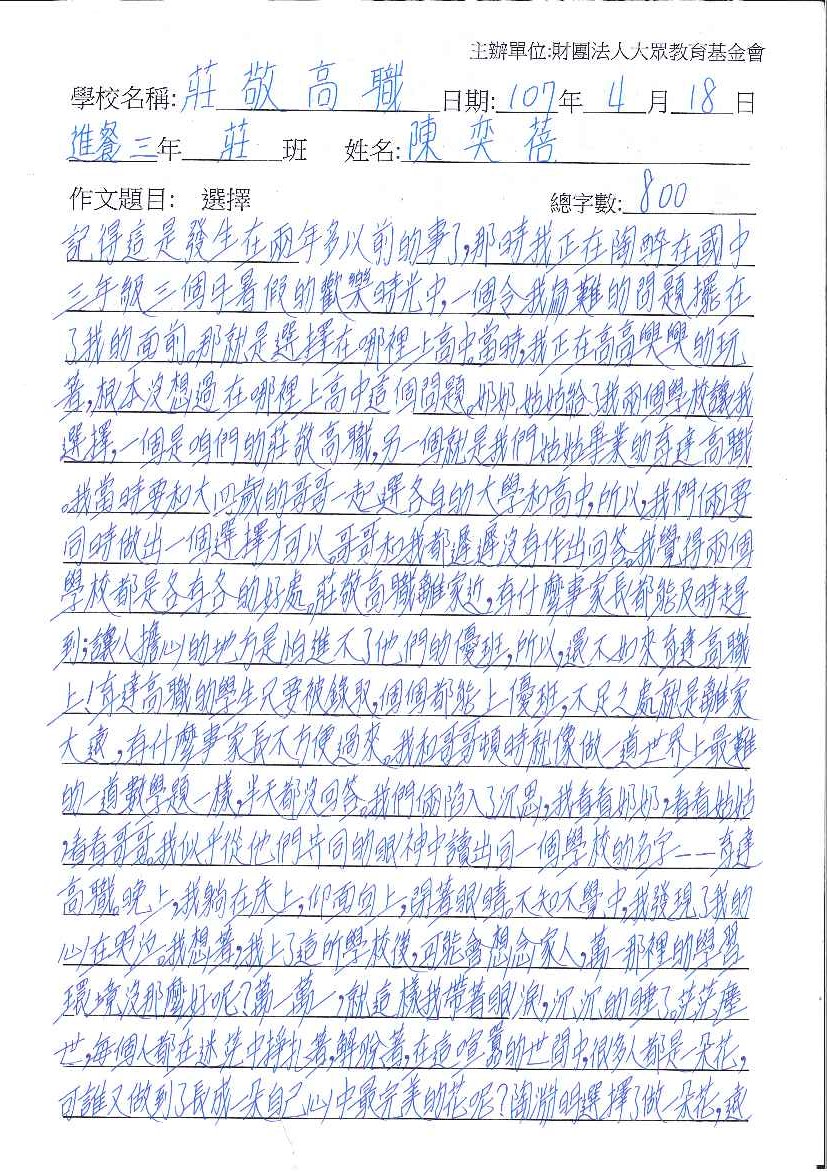 主辦單位:財團法人大眾教育基金會
學校名稱: 莊敬高職 日期: 107年 4 月 18 日
進餐三年 莊 班 姓名: 陳奕蓓
作文題目: 選擇 總字數: 800
記得這是發生在兩年多以前的事了,那時我正在陶醉在國中
三年級三個月暑假的歡樂時光中,一個令我為難的問題擺在
了我的面前。那就是選擇在哪裡上高中。當時,我正在高高興興的玩
著,根本沒想過在哪裡上高中這個問題。奶奶、姑姑給了我兩個學校讓我
選擇,一個是咱們的莊敬高職,另一個就是我們姑姑畢業的育達高職
。我當時要和大四歲的哥哥一起選各自的大學和高中,所以,我們倆要
同時做出一個選擇才可以。哥哥和我都遲遲沒有作出回答。我覺得兩個
學校都是各有各的好處。莊敬高職離家近,有什麼事家長都能及時趕
到;讓人擔心的地方是怕進不了他們的優班,所以,還不如來育達高職
上!育達高職的學生只要被錄取,個個都能上優班,不足之處就是離家
太遠,有什麼事家長不方便過來。我和哥哥頓時就像做一道世界上最難
的一道數學題一樣,半天都沒回答。我們倆陷入了沉思,我看看奶奶,看看姑姑
,看看哥哥。我似乎從他們共同的眼神中讀出同一個學校的名字——育達
高職。晚上,我躺在床上,仰面向上,閉著眼睛。不知不覺中,我發現了我的
心在哭泣。我想著,我上了這所學校後,可能會想念家人,萬一那裡的學習
環境沒那麼好呢?萬一萬一,就這樣我帶著眼淚,沉沉的睡了。茫茫塵
世,每個人都在迷茫中掙扎著,解脫著,在這喧囂的世間中,很多人都是一朵花,
可誰又做到了長成一朵自己心中最完美的花呢?陶淵明選擇了做一朵花,遠